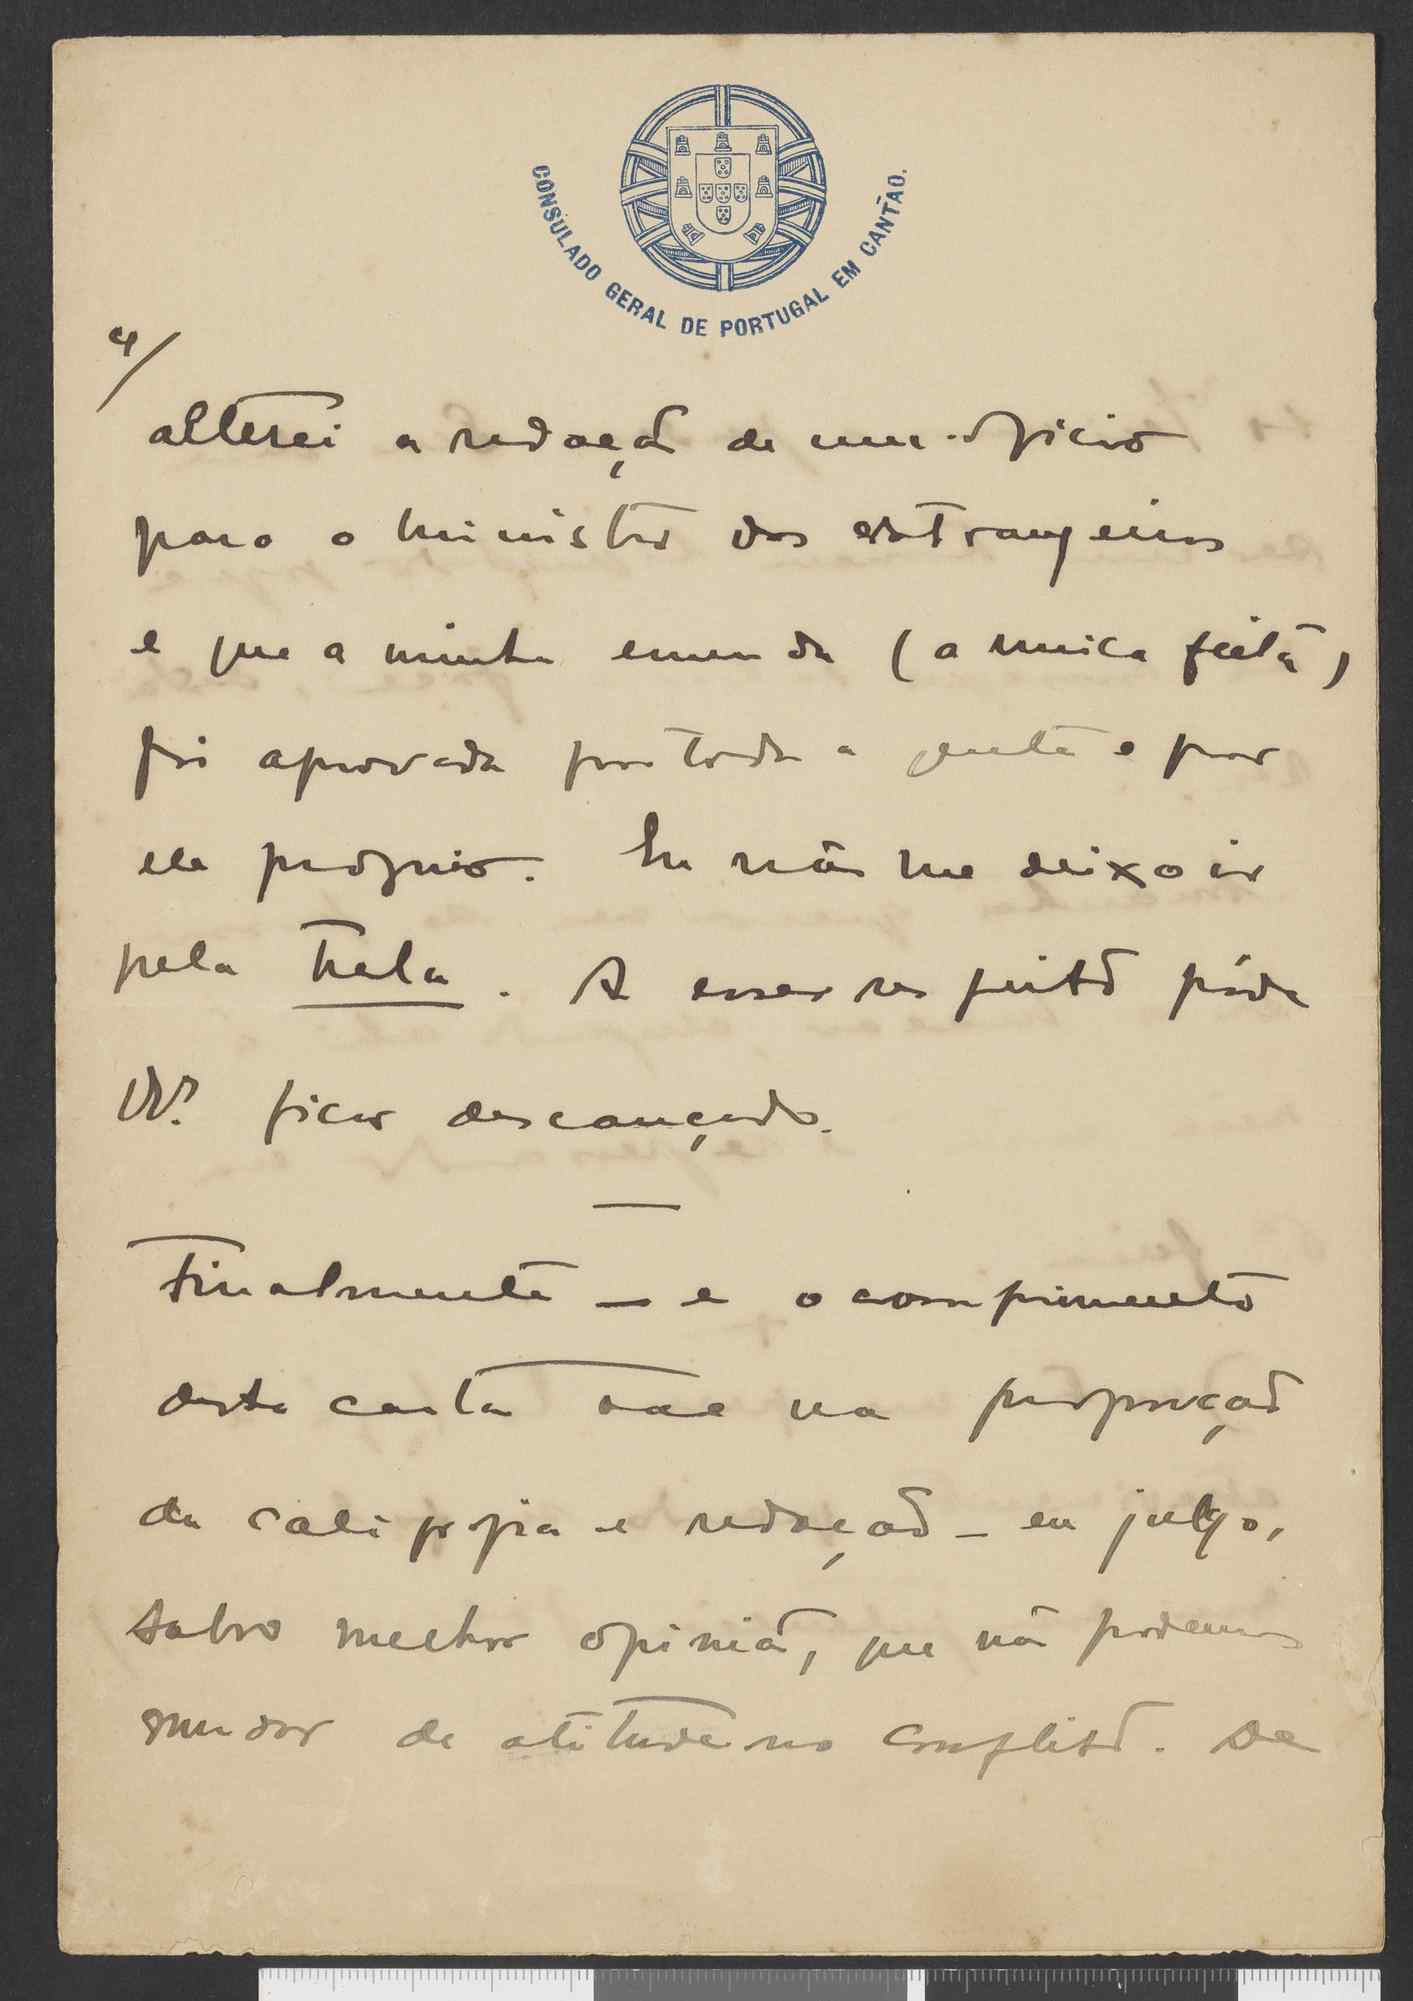 CONSULADO GERAL DE PORTUGAL EM CANTÃO.
4/
alterei a redação de um oficio
para o ministro dos estrangeiros
e que a minha emenda (a unica feita)
foi aprovada por toda a gente e por
ele proprio. Eu não me deixo ir
pela trela. A esse respeito póde
V. ficar descançado.
Finalmente — e o comprimento
desta carta vae na proporção
da caligrafia e redação — eu julgo,
salvo melhor opinião, que não podemos
mudar de atitude no conflito. De